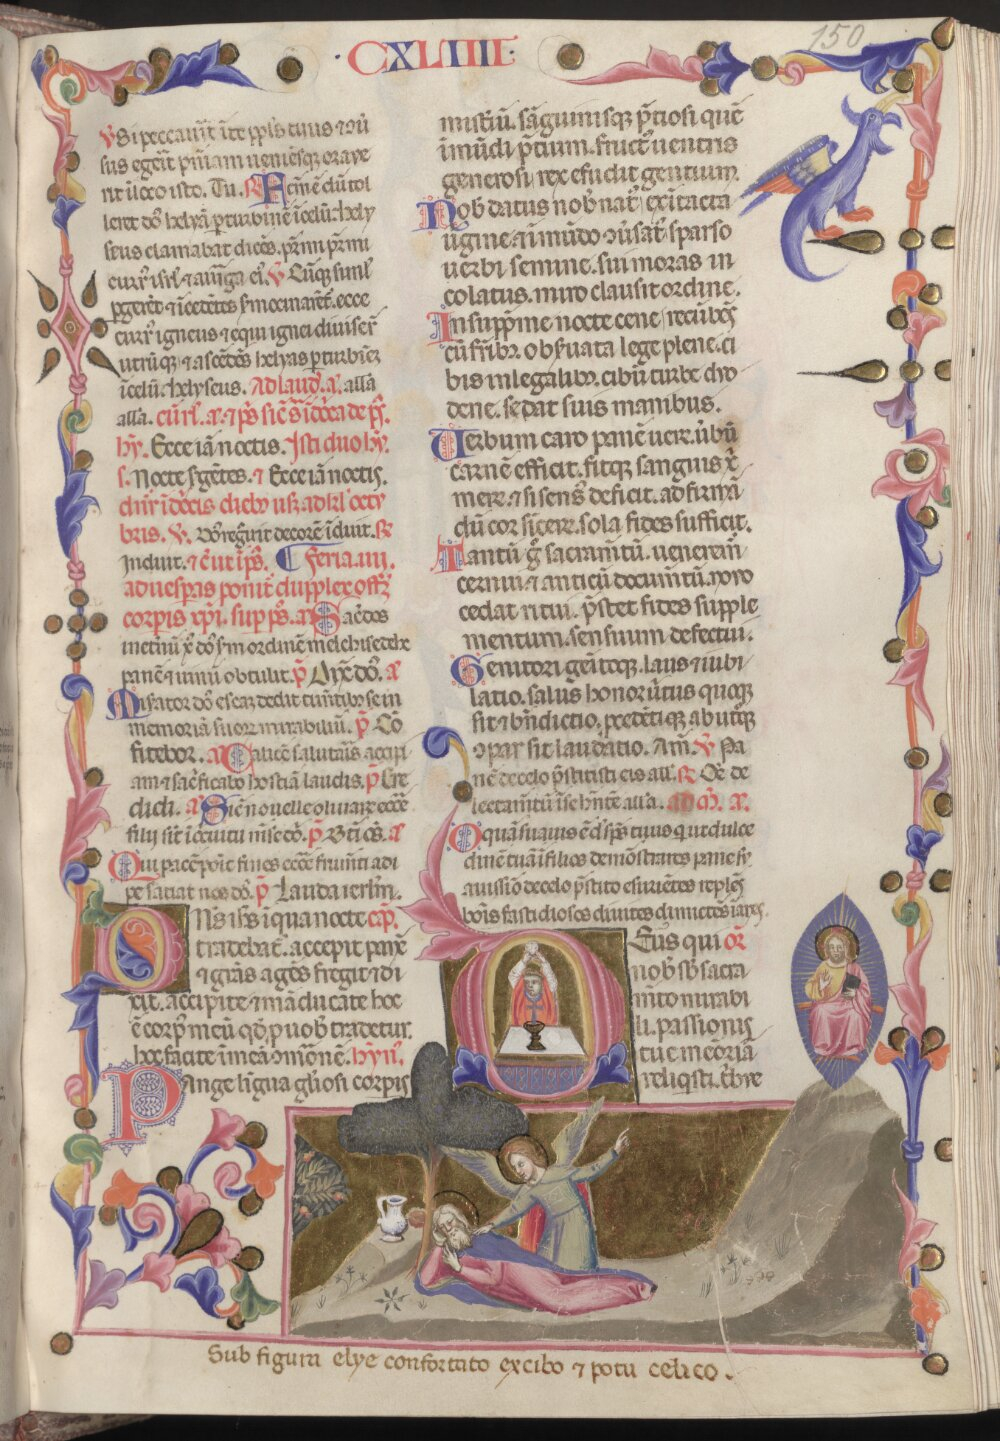 150
·CXLIIII·
leret dn̄s helyā p turbinē ī celū: hely
seus clamabat dicēs. pr̄ mi pr̄ mi
currꝰ isrl̄ ⁊ auriga eiꝰ. V̄. Cūq̨ siml̄
currꝰ igneus ⁊ equi ignei diviserūt
utrūq̨ ⁊ ascēdēs helyas p turbinē
ī celū. helyseus. Ad laud. a. alla
alla.
hȳ. Ecce iā noctis. Isti duo hȳ.
s. Nocte s̄gētes. ⁊ Ecce iā noctis.
bris. V̄. Dn̄s regn̄vit decorē īduit. R̄
Induit. Feria .iiii.
ad vesperas ponit̄ dupplex offm̄
corpis xp̄i. sup ps̄. a. Sac̄dos
inet̄nū xp̄s dn̄s s̄m ordinē melchisedech
panē ⁊ vinū obtulit. p̄. Dix̄ dn̄s. a.
Misator dn̄s escā dedit timētibꝰ se in
memoriā suorꝝ mirabiliū. p̄. Cō
fitebor. a. Calicē salutaris accipi
am ⁊ sac̄ficabo hostiā laudis. p̄. Cre
didi. a. Sic̄ novelle olivarꝝ ecce
filij sīt ī circuitu mēse dn̄i. p̄. Bt̄i oēs. a.
Qui pacē poīt fines ecc̄e frumti adi
pe satiat nos dn̄s. p̄. Lauda ierlm̄.
Dn̄s ih̄s ī qua nocte cap̄.
tradebat̄. accepit panē
⁊ gr̄as agēs fregit ⁊ di
xit. accipite ⁊ māducate hoc
ē corpꝰ meū qd̄ p vob̄ tradetur.
hoc facite ī meā ꝯmōnē. hȳn̄.
Pange līgua gl̄iosi corpis
mistiū. sāguinisq̨ p̄tiosi quē
ī mūdi p̄tium. fructꝰ ventris
generosi rex efudit gentium.
Nob̄ datus nob̄ natꝰ ex ītacta
v̄gine ⁊ ī mūdo ꝯv̄satꝰ sparso
verbi semine. sui moras in
colatus. miro clausit ordine.
In supp̄me nocte cene recūbēs
cū fr̄ibꝰ obs̄vata lege plene. ci
bis in legalibꝰ. cibū turbe duo
dene. se dat suis manibus.
Verbum caro panē verꝝ. v̄bū
carnē efficit. fitq̨ sanguis xp̄i
merꝝ. ⁊ si sensꝰ deficit. ad firmā
dū cor sīcerꝝ. sola fides sufficit.
Tantū g̊ sacramtū. veneremr̄
cernui ⁊ anticū documtū. novo
cedat ritui. p̄stet fides supple
mentum. sensuum defectui.
Genitori genitoq̨. laus ⁊ iubi
latio. salus honor v̄tus quoq̨
sit ⁊ bn̄dictio. p̄cedētiq̨ ab utq̨
ꝯpar sit laudatio. Am̄. V̄. Pa
nē de celo p̄stitisti eis all̄a. R̄. Oē de
lectamtū ī se hn̄tē alla. ad m̄. a.
O quā suavis ē dn̄e sp̄s tuus q ut dulce
dinē tuā ī filios demōstrares pane su
avissīo de celo p̄stito esuriētes reples
bōis fastidiosos divites dimictēs īanes.
Deus qui or̄.
nob̄ sb̄ sacra
mto mirabi
li. passionis
tue mēoriā
reliqsti. t̄bue
Sub figura elye confortato ex cibo ⁊ potu celico.